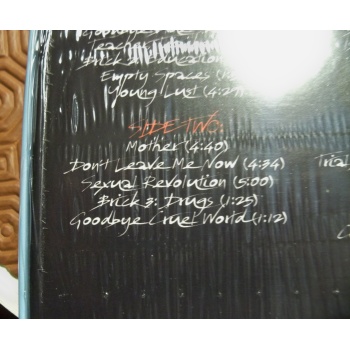 Goodbye
Teach
Brick 2: Education
Empty Spaces (1:
Young Lust (4:2
SIDE TWO:
Mother (4:40)
Don't Leave Me Now (4:34)
Sexual Revolution (5:00)
Brick 3: Drugs (1:25)
Goodbye Cruel World (1:12)
Trial